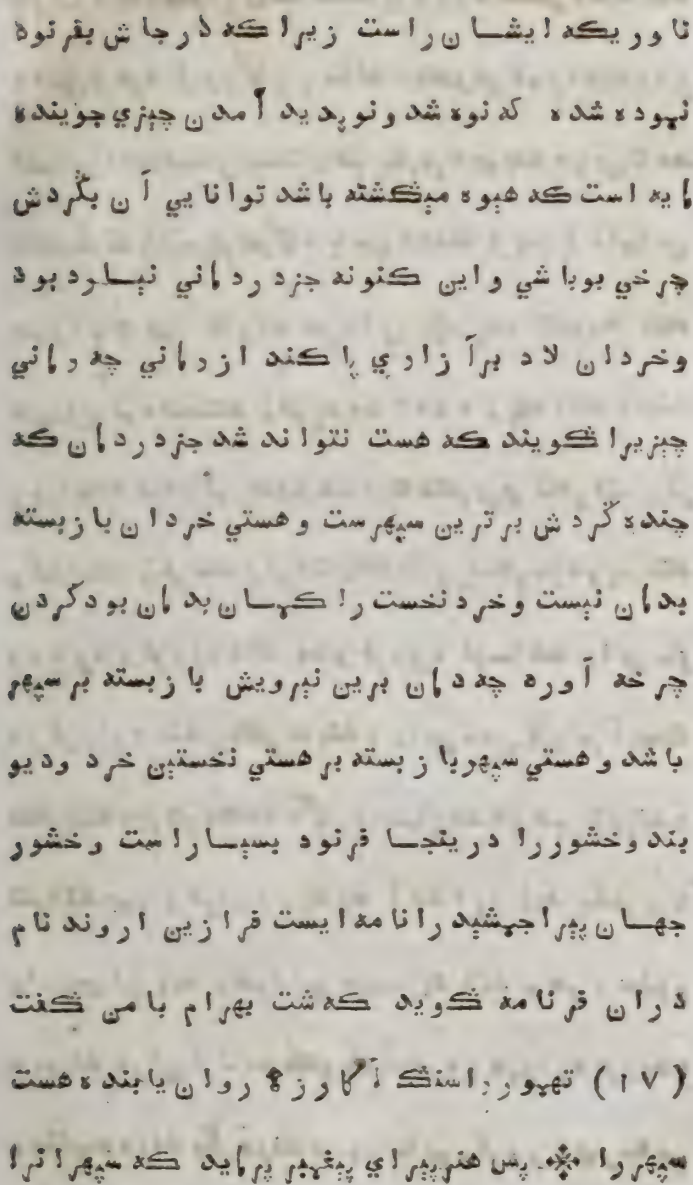 تاوریکه ایشان راست زیرا که درجاش بفرنود
نموده شده که نوه شد و نوپدید آمدن چیزي جوینده
مایه است که همیوه میگشته باشد توانایي آن بگردش
چرخي بوباشي و این کنونه جزدر دماني نیارد بود
وخردان لاد برآزاري پاکند از دماني چه دماني
چیزیرا گویند که هست نتواند شد جزدر دمان که
چنده گردش برترین سپهرست و هستي خردان بازبسته
بدمان نیست وخرد نخست را کهسان بدمان بودکردن
چرخه آوره چه دمان برین نیرویش بازبسته بر سپهر
باشد و هستي سپهر بازبسته بر هستي نخستین خرد ودیو
بند وخشوررا درینجا فرنود بسیاراست وخشور
جهان پیرا جمشید را نامه ایست فرازین اروند نام
دران فرنامه گوید که شت بهرام بامن گفت
(۱۷) تهمور راسنگ آکارزه روان یابنده هست
سپهر را ❊ پس هنرپیراي پیغمبر پرماید که سپهرانرا